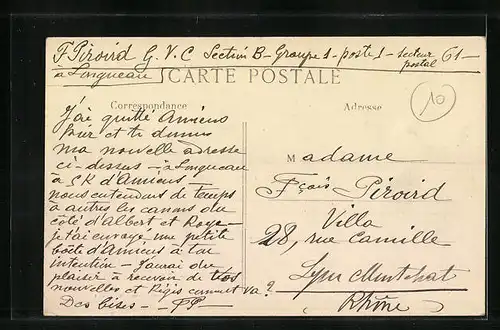 F Piroird G. V. C Section B - Groupe 1 - poste 1 - secteur postal 61 -
à Longueau
CARTE POSTALE
10
Correspondance
Adresse
J'ai quitté Amiens
hier et te donne
ma nouvelle adresse
ci-dessus - à Longueau
à 5K d'Amiens -
nous entendons de temps
à autres les canons du
côté d'Albert et Roye -
je t'ai envoyé une petite
boîte d'Amiens à ton
intention - J'aurai du
plaisir à recevoir de tes
nouvelles et Régis comment va ?
Des bises - FP
Madame
Fçois Piroird
Villa
28, rue Camille
Lyon Montchat
Rhône